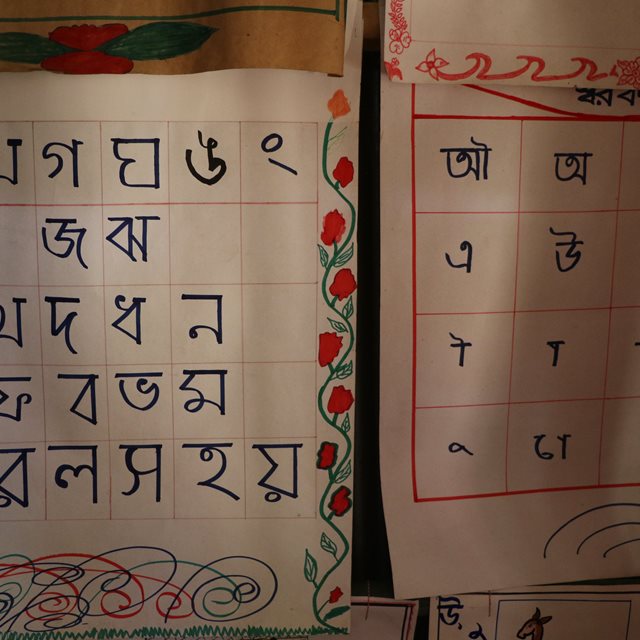 গ ঘ ঙ ং
জ ঝ
থ দ ধ ন
ফ ব ভ ম
র ল স হ য়
ঔ অ
এ উ
ৗ া
ো
উ